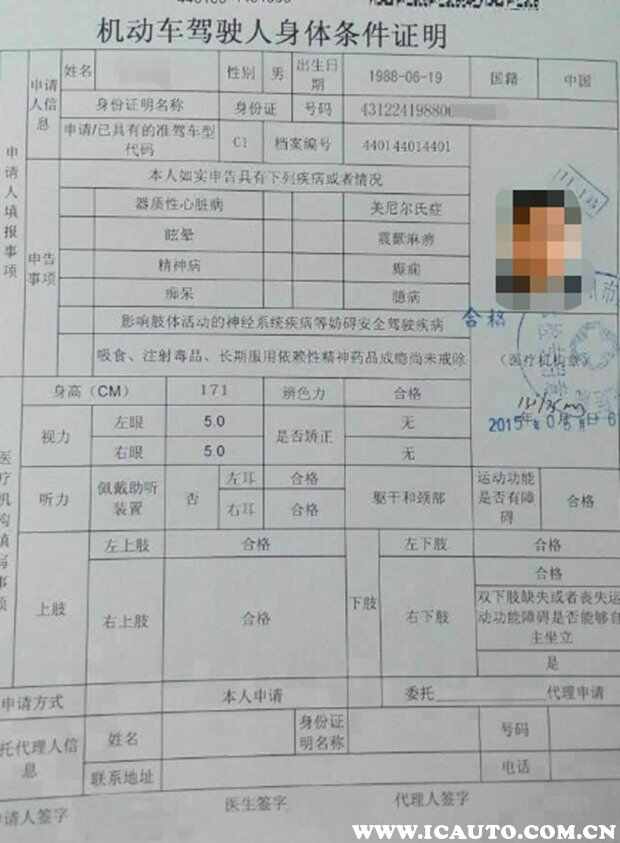 机动车驾驶人身体条件证明
申请人填报事项
申请人信息
姓名 性别 男 出生日期 1988-06-19 国籍 中国
身份证明名称 身份证 号码 431224198806
申请/已具有的准驾车型代码 C1 档案编号 440144014401
申告事项
本人如实申告具有下列疾病或者情况
器质性心脏病 美尼尔氏症
眩晕 震颤麻痹
精神病 癫痫
痴呆 癔病
影响肢体活动的神经系统疾病等妨碍安全驾驶疾病
吸食、注射毒品、长期服用依赖性精神药品成瘾尚未戒除
合格
(医疗机构章)
2015年05月
医疗机构填写事项
身高(CM) 171 辨色力 合格
视力 左眼 5.0 是否矫正 无
右眼 5.0 无
听力 佩戴助听装置 否 左耳 合格 躯干和颈部 运动功能是否有障碍 合格
右耳 合格
上肢 左上肢 合格 下肢 左下肢 合格
右上肢 合格 右下肢 合格
双下肢缺失或者丧失运动功能障碍是否能够自主坐立
是
申请方式 本人申请 委托 代理申请
托代理人信息 姓名 身份证明名称 号码
联系地址 电话
请人签字 医生签字 代理人签字
WWW.ICAUTO.COM.CN